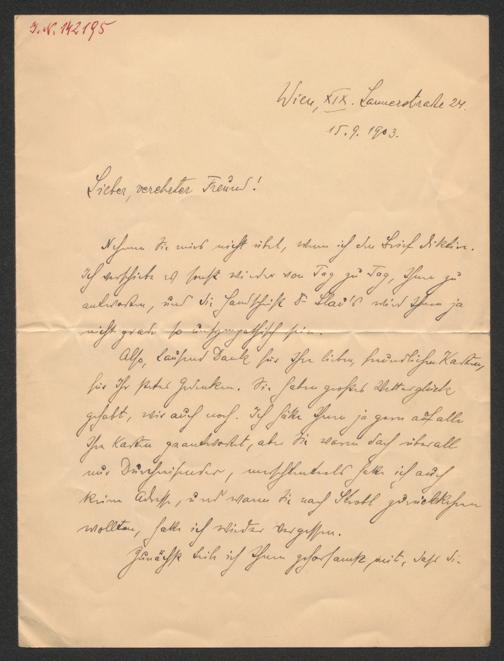 I.N. 142195
Wien, XIX. Lannerstraße 24.
15.9.1903.
Lieber, verehrter Freund!
Nehmen Sie mirs nicht übel, wenn ich den Brief diktire.
Ich verschiebe es sonst wieder von Tag zu Tag, Ihnen zu
antworten, und die Handschrift wird Ihnen ja
nicht grade so unsympathisch sein.
Also, tausend Dank für Ihre lieben, freundlichen Karten,
für Ihr stetes Gedenken. Sie haben großes Wetterglück
gehabt, wir auch noch. Ich hätte Ihnen ja gern auf alle
Ihre Karten geantwortet, aber Sie waren doch überall
nur Durchreisender, meistentheils hatte ich auch
keine Adresse, und wann Sie nach Strobl zurückkehren
wollten, hatte ich wieder vergessen.
Zunächst theile ich Ihnen gehorsamst mit, daß die